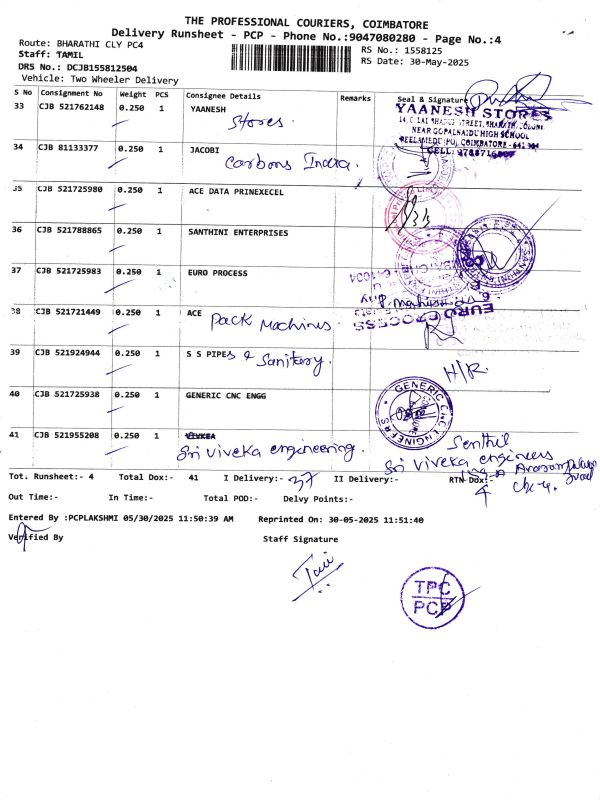 THE PROFESSIONAL COURIERS, COIMBATORE
Delivery Runsheet - PCP - Phone No.:9047080280 - Page No.:4
Route: BHARATHI CLY PC4
RS No.: 1558125
Staff: TAMIL
RS Date: 30-May-2025
DRS No.: DCJB155812504
Vehicle: Two Wheeler Delivery
S No Consignment No Weight PCS Consignee Details Remarks Seal & Signature
33 CJB 521762148 0.250 1 YAANESH
Stores.
YAANESH STORES
NEAR GOPALNAIDU HIGH SCHOOL
PEELAMEDU (PO), COIMBATORE - 641 004
34 CJB 81133377 0.250 1 JACOBI
Carbons India.
35 CJB 521725980 0.250 1 ACE DATA PRINEXECEL
36 CJB 521788865 0.250 1 SANTHINI ENTERPRISES
37 CJB 521725983 0.250 1 EURO PROCESS
EURO PROCESS
38 CJB 521721449 0.250 1 ACE
Pack Machines.
39 CJB 521924944 0.250 1 S S PIPES & Sanitary.
H/R.
40 CJB 521725938 0.250 1 GENERIC CNC ENGG
GENERIC CNC ENGINEERS
41 CJB 521955208 0.250 1 VIVKEA
Sri Viveka engineering.
Senthil
Sri Viveka engineers
Tot. Runsheet:- 4 Total Dox:- 41 I Delivery:- 37 II Delivery:- RTN Dox:- 4
Out Time:- In Time:- Total POD:- Delvy Points:-
Entered By :PCPLAKSHMI 05/30/2025 11:50:39 AM Reprinted On: 30-05-2025 11:51:40
Verified By Staff Signature
TPC
PCP